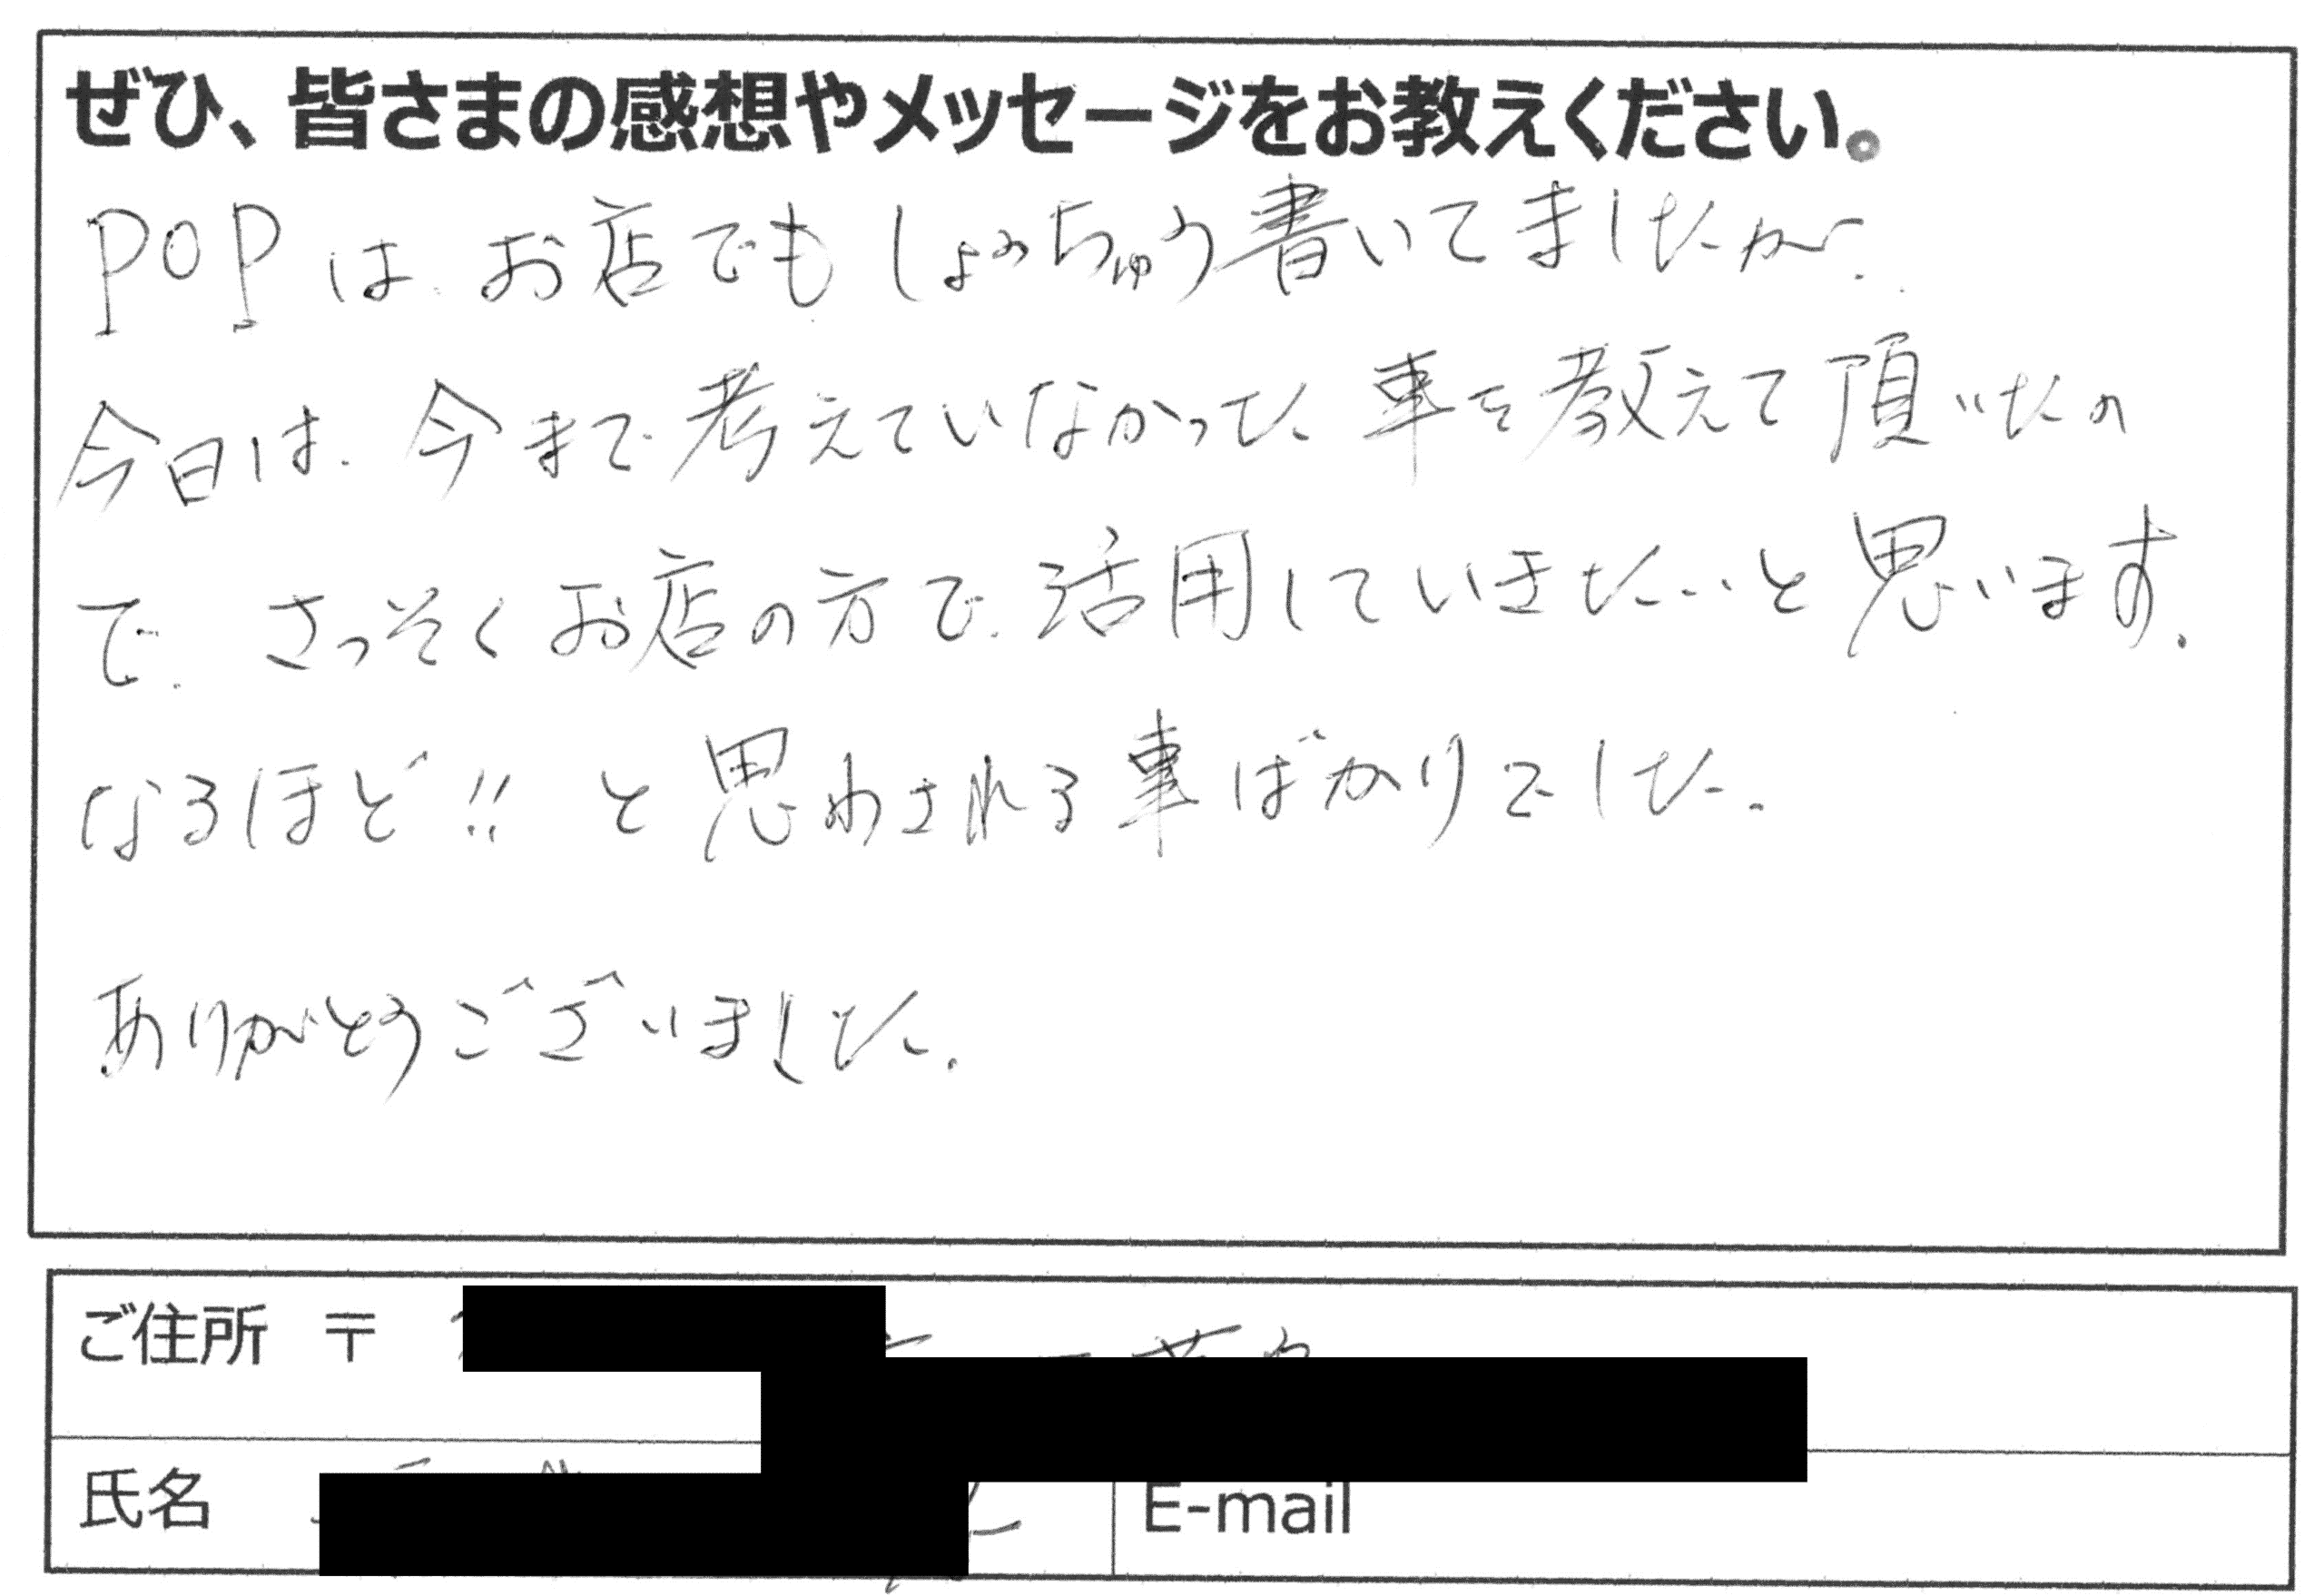 ぜひ、皆さまの感想やメッセージをお教えください。
POPは、お店でもしょっちゅう書いてましたが、
今日は、今まで考えていなかった事を教えて頂いたの
で、さっそくお店の方で、活用していきたいと思います。
なるほど!!と思わされる事ばかりでした。
ありがとうございました。
ご住所 〒
氏名
E-mail